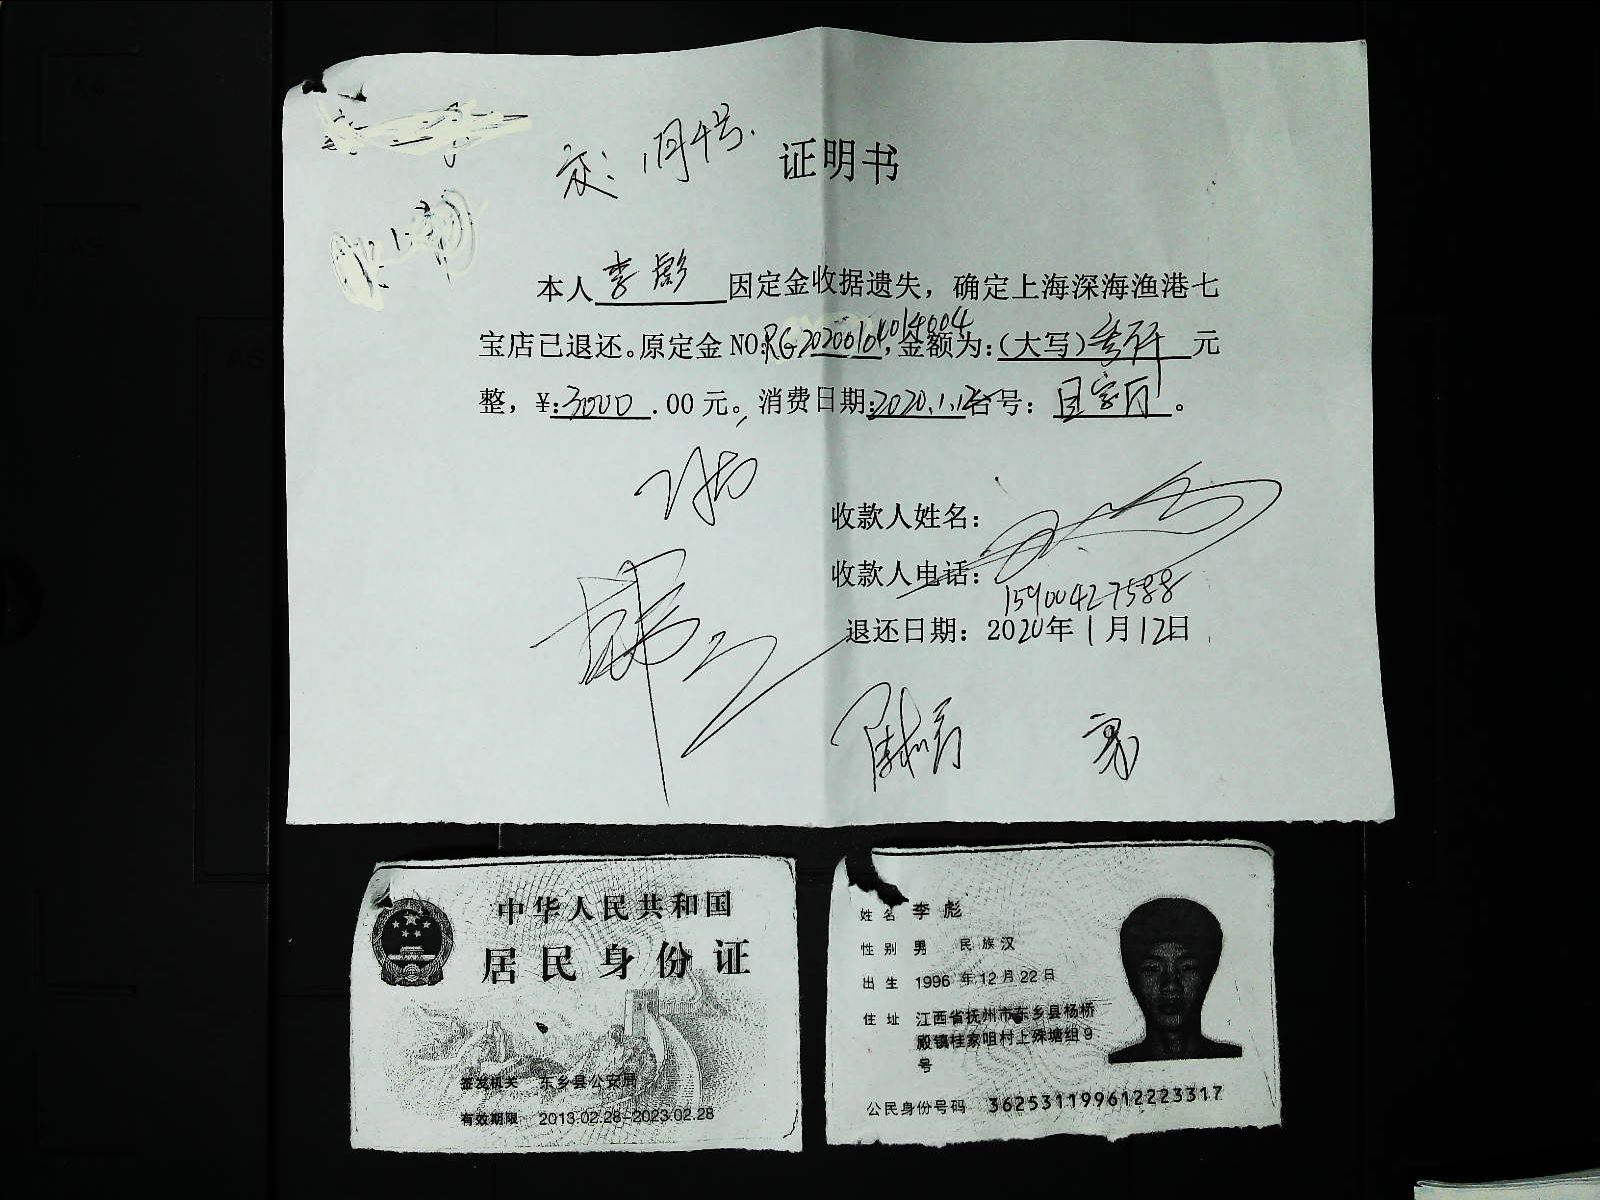 交：1月4号.
证明书
本人李彪因定金收据遗失，确定上海深海渔港七
宝店已退还。原定金NO:RG20200104014004,金额为：（大写）叁仟元
整，¥:3000.00元。消费日期:2020.1.12台号：宴厅。
收款人姓名：
收款人电话：15900427588
退还日期：2020年1月12日
中华人民共和国
居民身份证
签发机关 东乡县公安局
有效期限 2013.02.28-2023.02.28
姓名 李彪
性别 男 民族汉
出生 1996年12月22日
住址 江西省抚州市东乡县杨桥
殿镇桂家咀村上殊塘组9
号
公民身份号码 362531199612223317